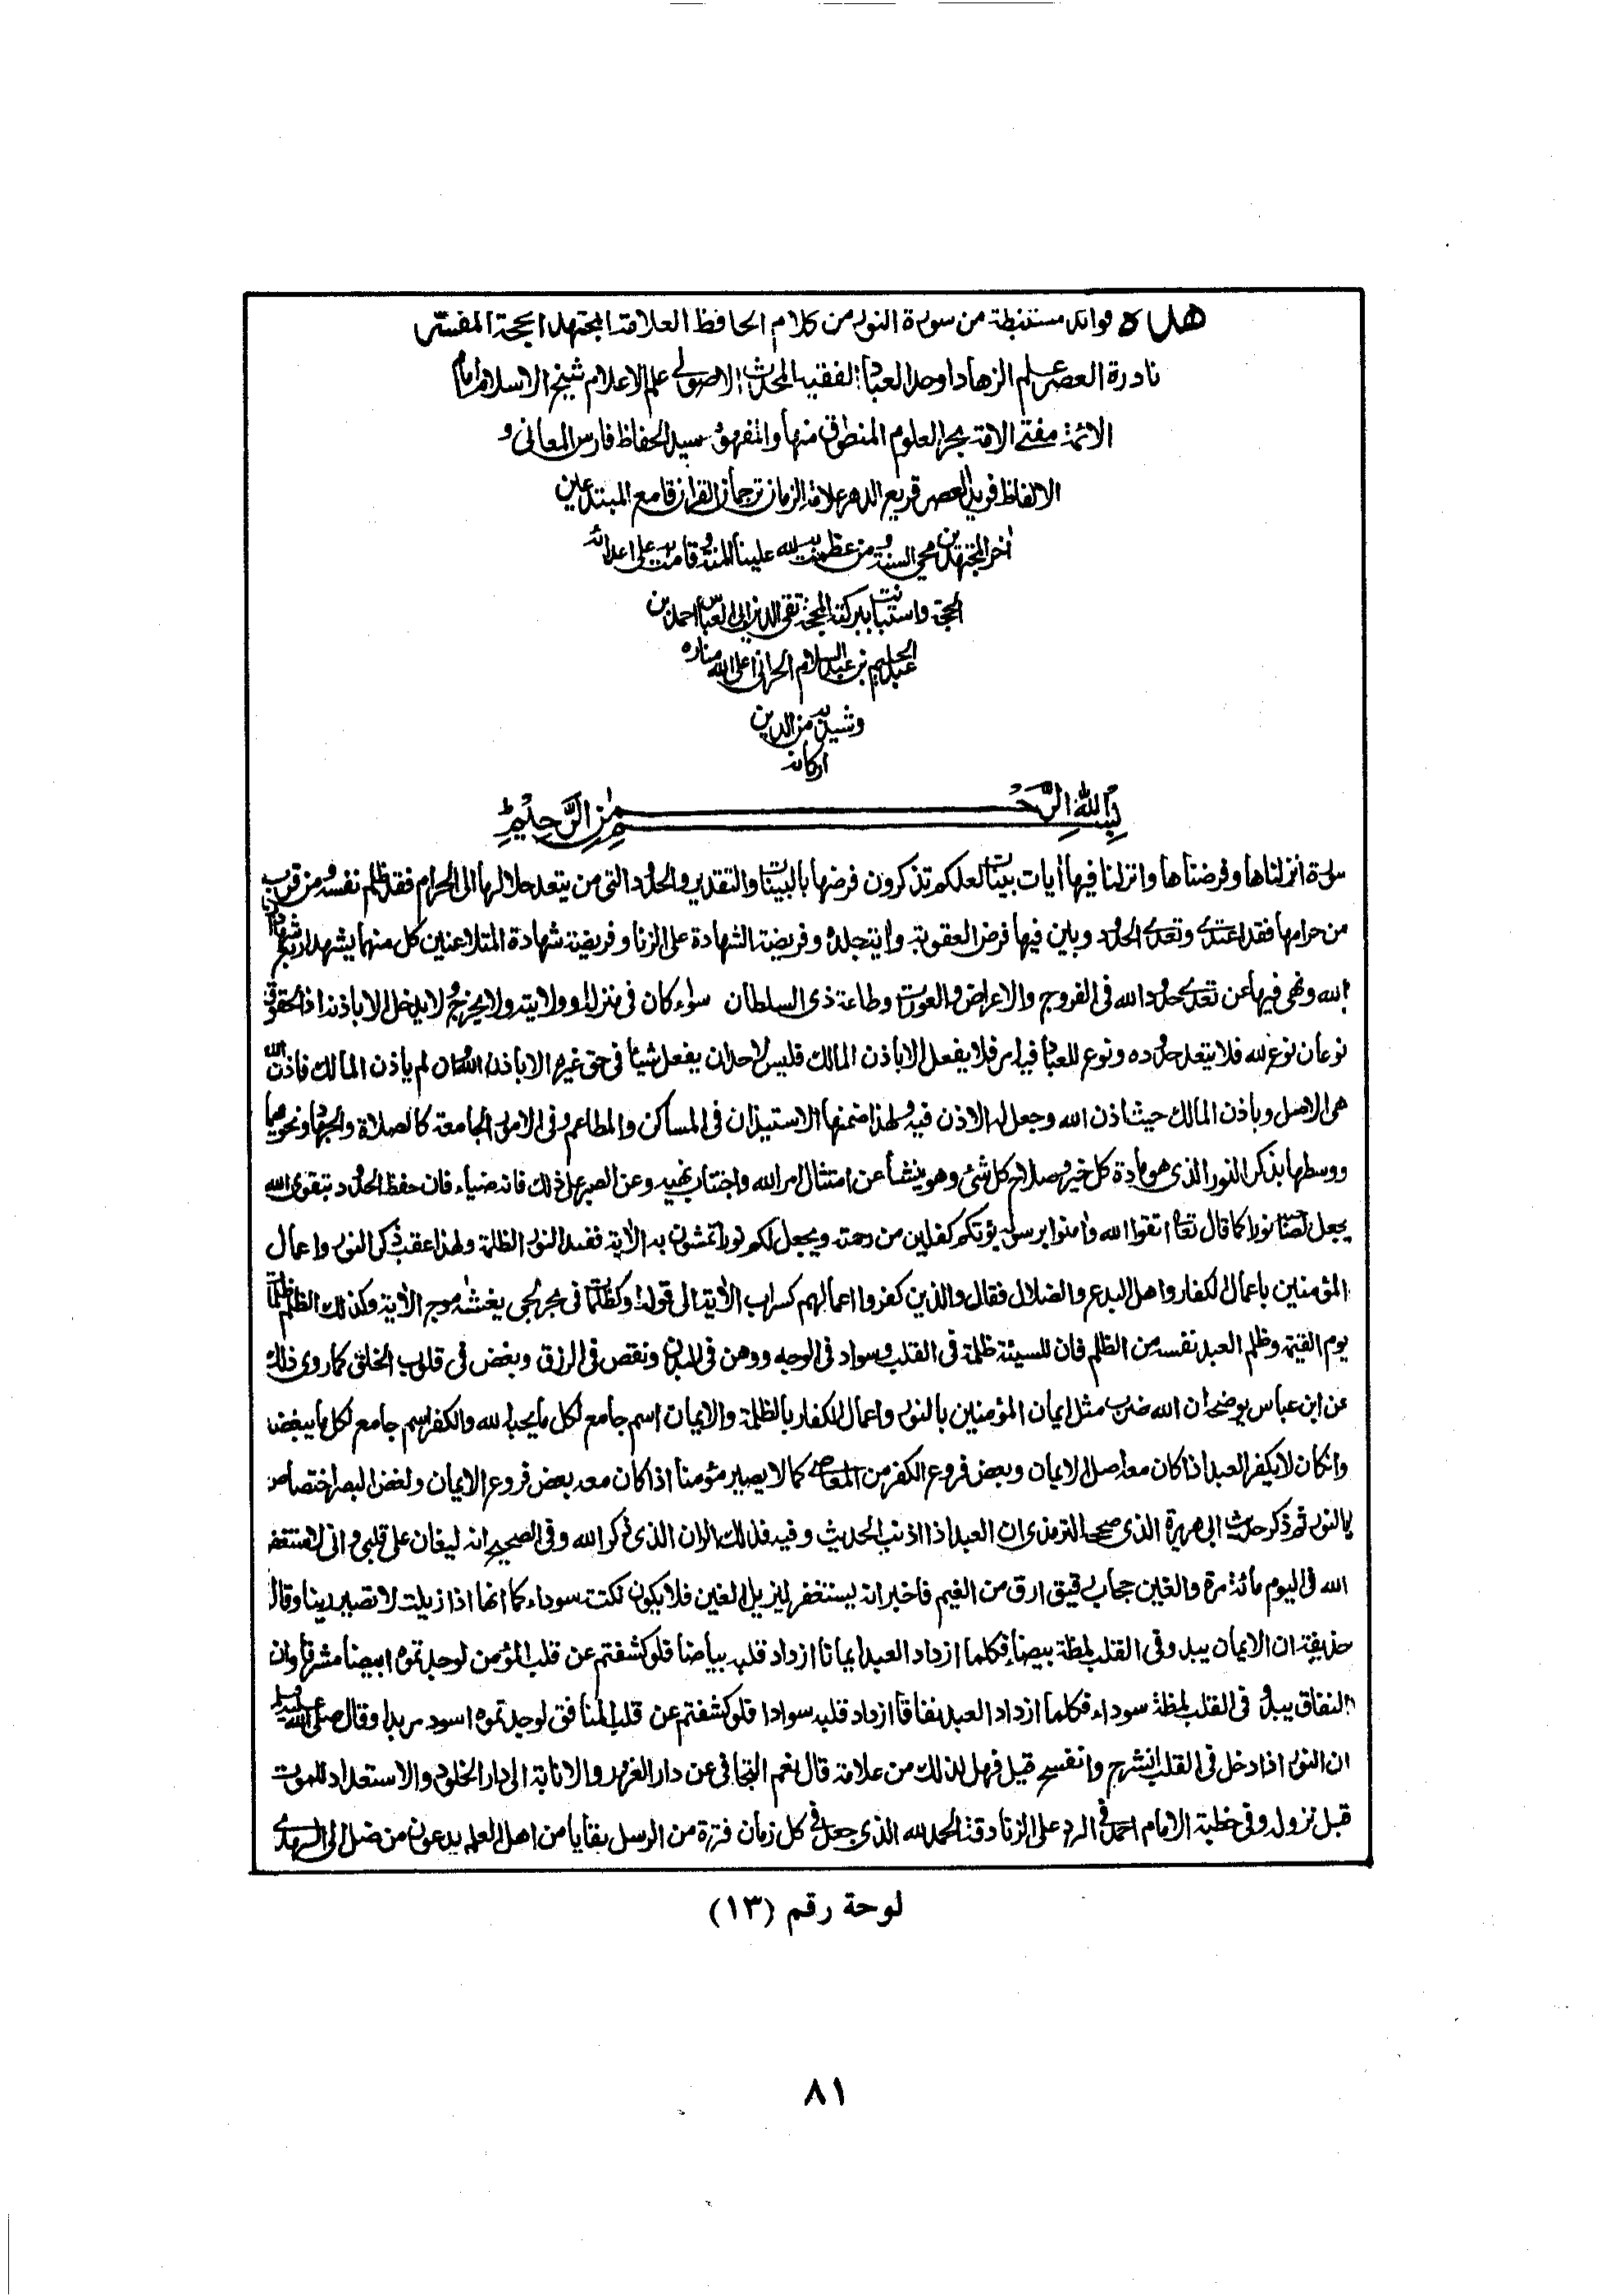 هذه فوائد مستنبطة من سورة النور من كلام الحافظ العلامة المجتهد الحجة المفسر
نادرة العصر علم الزهاد اوحد العباد الفقيه المحدث الاصولى علم الاعلام شيخ الاسلام امام
الائمة مفتى الامة بحر العلوم المنطوق منها والمفهوم سيد الحفاظ فارس المعانى و
الالفاظ فريد العصر قريع الدهر علامة الزمان ترجمان القران قامع المبتدعين
اخر المجتهدين محى السنة ومن عظمت به لله علينا المنة وقامت به على اعدائه
الحجة واستبانت ببركته المحجة تقى الدين ابى العباس احمد بن
عبد الحليم بن عبد السلام الحرانى اعلى الله مناره
وشيد به من الدين
اركانه
بسم الله الرحمن الرحيم
سورة انزلناها وفرضناها وانزلنا فيها ايات بينات لعلكم تذكرون فرضها بالبينات والتقدير والحدود التى من يتعد حلالها الى الحرام فقد ظلم نفسه ومن قرب
من حرامها فقد اعتدى وتعدى الحدود وبين فيها فرض العقوبة واية الجلد وفريضة الشهادة على الزنا وفريضة شهادة المتلاعنين كل منهما يشهد اربع شهادات
بالله ونهى فيها عن تعدى حدود الله فى الفروج والاعراض والعورات وطاعة ذى السلطان سواء كان فى منزله او ولايته ولا يخرج ولا يدخل الا باذنه اذ الحقوق
نوعان نوع لله فلا يتعدى حدوده ونوع للعباد فيه امر فلا يفعل الا باذن المالك فليس لاحد ان يفعل شيئا فى حق غيره الا باذن الله وان لم ياذن المالك فاذن الله
هى الاصل وباذن المالك حيث اذن الله وجعل له الاذن فيه ولهذا ضمنها الاستيذان فى المساكن والمطاعم وفى الامور الجامعة كالصلاة والجهاد ونحوهما
ووسطها بذكر النور الذى هو مادة كل خير وصلاح كل شئ وهو ينشأ عن امتثال امر الله واجتناب نهيه وعن الصبر على ذلك فانه ضياء فان حفظ الحدود بتقوى الله
يجعل لصاحبه نورا كما قال تعا اتقوا الله وامنوا برسوله يؤتكم كفلين من رحمته ويجعل لكم نورا تمشون به الاية فضد النور الظلمة ولهذا عقب ذكر النور واعمال
المؤمنين باعمال الكفار واهل البدع والضلال فقال والذين كفروا اعمالهم كسراب الاية الى قوله او كظلمات فى بحر لجى يغشه موج الاية وكذلك الظلم ظلمات
يوم القيمة وظلم العبد نفسه من الظلم فان للسيئة ظلمة فى القلب وسواد فى الوجه ووهن فى البدن ونقص فى الرزق وبغض فى قلوب الخلق كما روى ذلك
عن ابن عباس يوضحه ان الله ضرب مثل ايمان المؤمنين بالنور واعمال الكفار بالظلمة والايمان اسم جامع لكل ما يحبه الله والكفر اسم جامع لكل ما يبغضه
وانكان لا يكفر العبد اذا كان معه اصل الايمان وبعض فروع الكفر من المعاصى كما لا يصير مؤمنا اذا كان معه بعض فروع الايمان ولغض البصر اختصاص
بالنور ثم ذكر حديث ابى هريرة الذى صححه الترمذى ان العبد اذا اذنب الحديث وفيه فذلك الران الذى ذكر الله وفى الصحيح انه ليغان على قلبى وانى لاستغفر
الله فى اليوم مائة مرة والغين حجاب رقيق ارق من الغيم فاخبر انه يستغفر ليزيل الغين فلا يكون نكتة سوداء كما انها اذا زيلت لا تصير رينا وقال
حذيفة ان الايمان يبدو فى القلب لمظة بيضاء فكلما ازداد العبد ايمانا ازداد قلبه بياضا فلو كشفتم عن قلب المؤمن لوجدتموه ابيضا مشرقا وان
النفاق يبدو فى القلب لمظة سوداء فكلما ازداد العبد نفاقا ازداد قلبه سوادا فلو كشفتم عن قلب المنافق لوجدتموه اسود مربدا وقال صلى الله عليه وسلم
ان النور اذا دخل فى القلب انشرح وانفسح قيل فهل لذلك من علامة قال نعم التجافى عن دار الغرور والانابة الى دار الخلود والاستعداد للموت
قبل نزوله وفى خطبة الامام احمد فى الرد على الزنادقة الحمد لله الذى جعل فى كل زمان فترة من الرسل بقايا من اهل العلم يدعون من ضل الى الهدى
لوحة رقم (١٣)
٨١